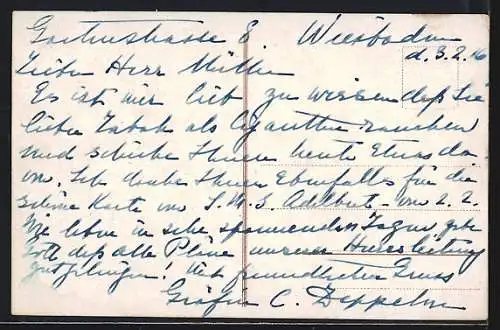 Gartenstrasse 8 Wiesbaden
d. 3.2.16
Lieber Herr Müller
Es ist mir lieb zu wissen daß Sie
lieber Tabak als Cigaretten rauchen
und schicke Ihnen heute Etwas da-
von. Ich danke Ihnen Ebenfalls für die
schöne Karte von S.M.S. Adalbert von 2. 2.
Wir leben in sehr spannenden Tagen, gebe
Gott daß alle Pläne unserer Heeresleitung
gut gelingen! Mit freundlichem Gruss
Gräfin C. Zeppelin